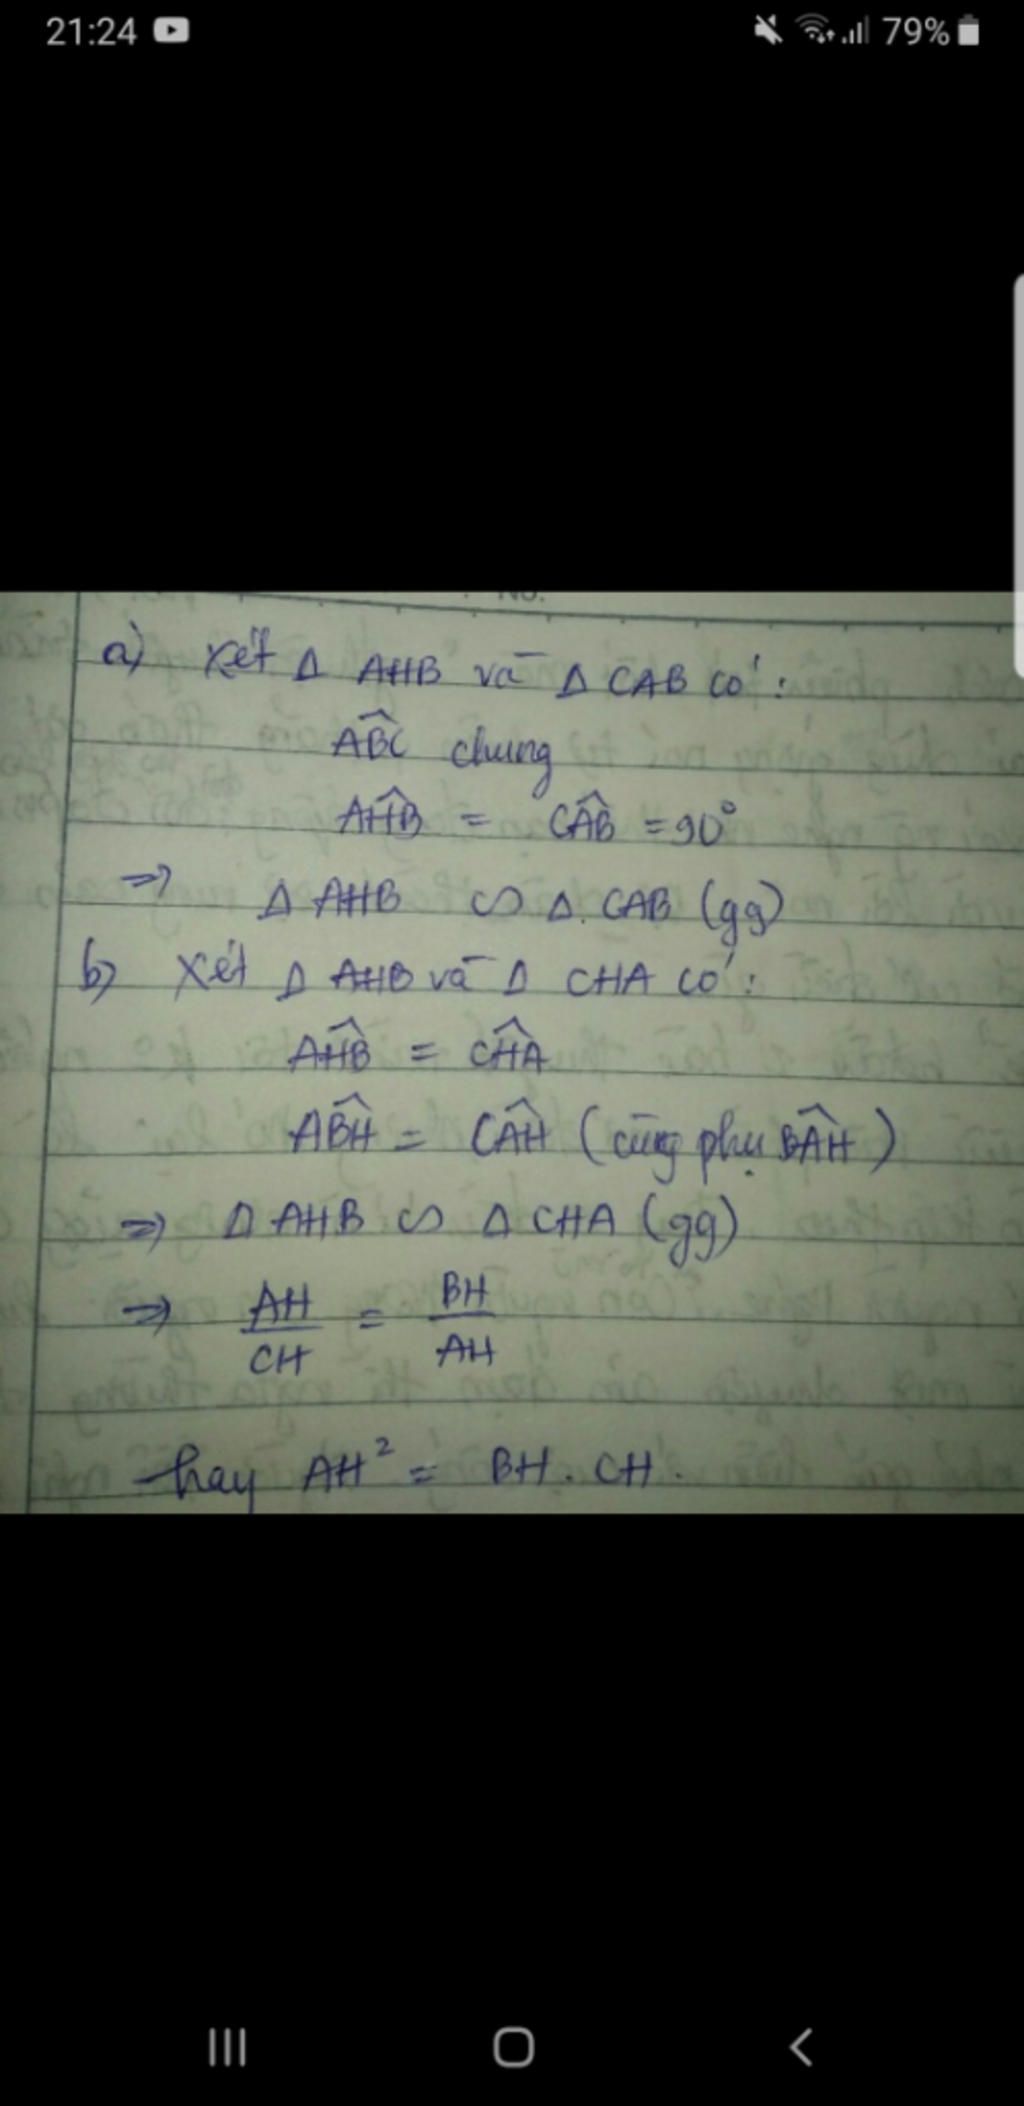 21:24 79%
No.
a) Xét Δ AHB và Δ CAB có:
ABC^ chung
AHB^ = CAB^ = 90°
=> Δ AHB ∽ Δ CAB (gg)
b) Xét Δ AHB và Δ CHA có:
AHB^ = CHA^
ABH^ = CAH^ (cùng phụ BAH^)
=> Δ AHB ∽ Δ CHA (gg)
=> AH/CH = BH/AH
hay AH² = BH. CH.